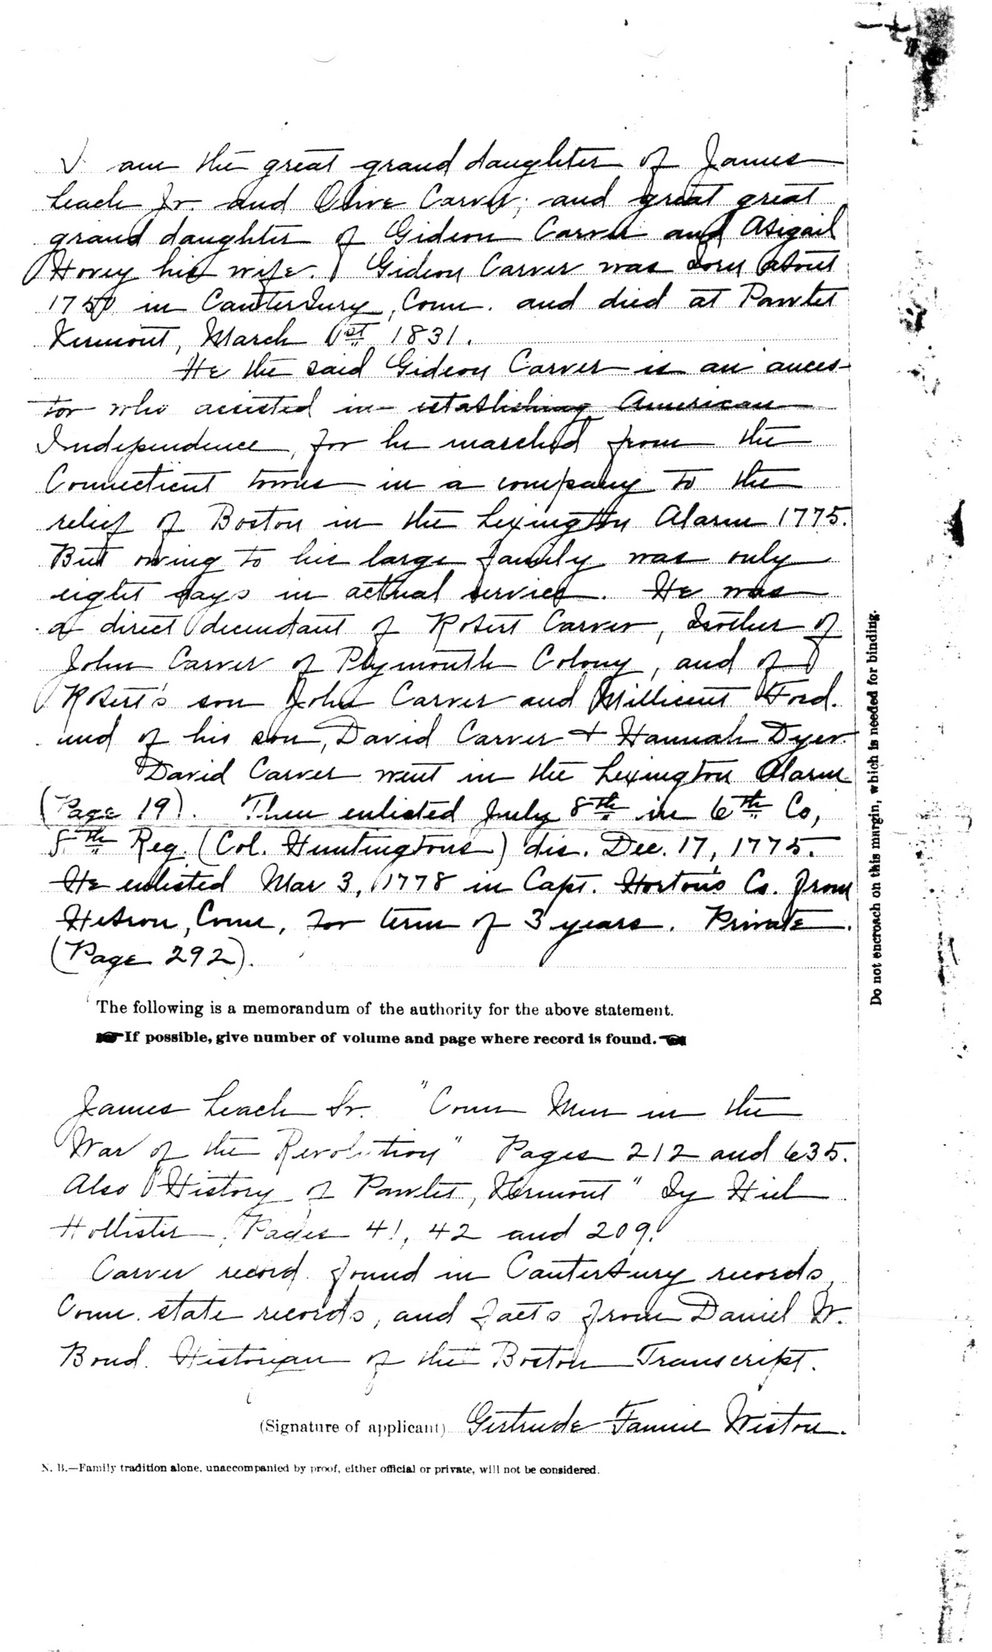 I am the great grand daughter of James
Leach Jr. and Olive Carver, and great great
grand daughter of Gideon Carver and Abigail
Hovey his wife. Gideon Carver was born about
1750 in Canterbury, Conn. and died at Pawlet
Vermont, March 1st 1831.
He the said Gideon Carver is an ances-
tor who assisted in establishing American
Independence, for he marched from the
Connecticut towns in a company to the
relief of Boston in the Lexington Alarm 1775.
But owing to his large family was only
eight days in actual service. He was
a direct decendant of Robert Carver, brother of
John Carver of Plymouth Colony, and of
Robert's son John Carver and Millicent Ford.
and of his son, David Carver + Hannah Dyer
David Carver went in the Lexington Alarm
(Page 19). Then enlisted July 8th in 6th Co,
8th Reg. (Col. Huntingtons) dis. Dec. 17, 1775.
He enlisted Mar 3, 1778 in Capt. Horton's Co. from
Hebron, Conn, for term of 3 years. Private.
(Page 292).
Do not encroach on this margin, which is needed for binding.
The following is a memorandum of the authority for the above statement.
If possible, give number of volume and page where record is found.
James Leach Sr. "Conn Men in the
War of the Revolution" Pages 212 and 635.
Also "History of Pawlet, Vermont" by Hiel
Hollister, Pages 41, 42 and 209.
Carver record found in Canterbury records,
Conn. state records, and facts from Daniel W.
Bond. Historian of the Boston Transcript.
(Signature of applicant) Gertrude Fannie Weston.
N. B.—Family tradition alone, unaccompanied by proof, either official or private, will not be considered.